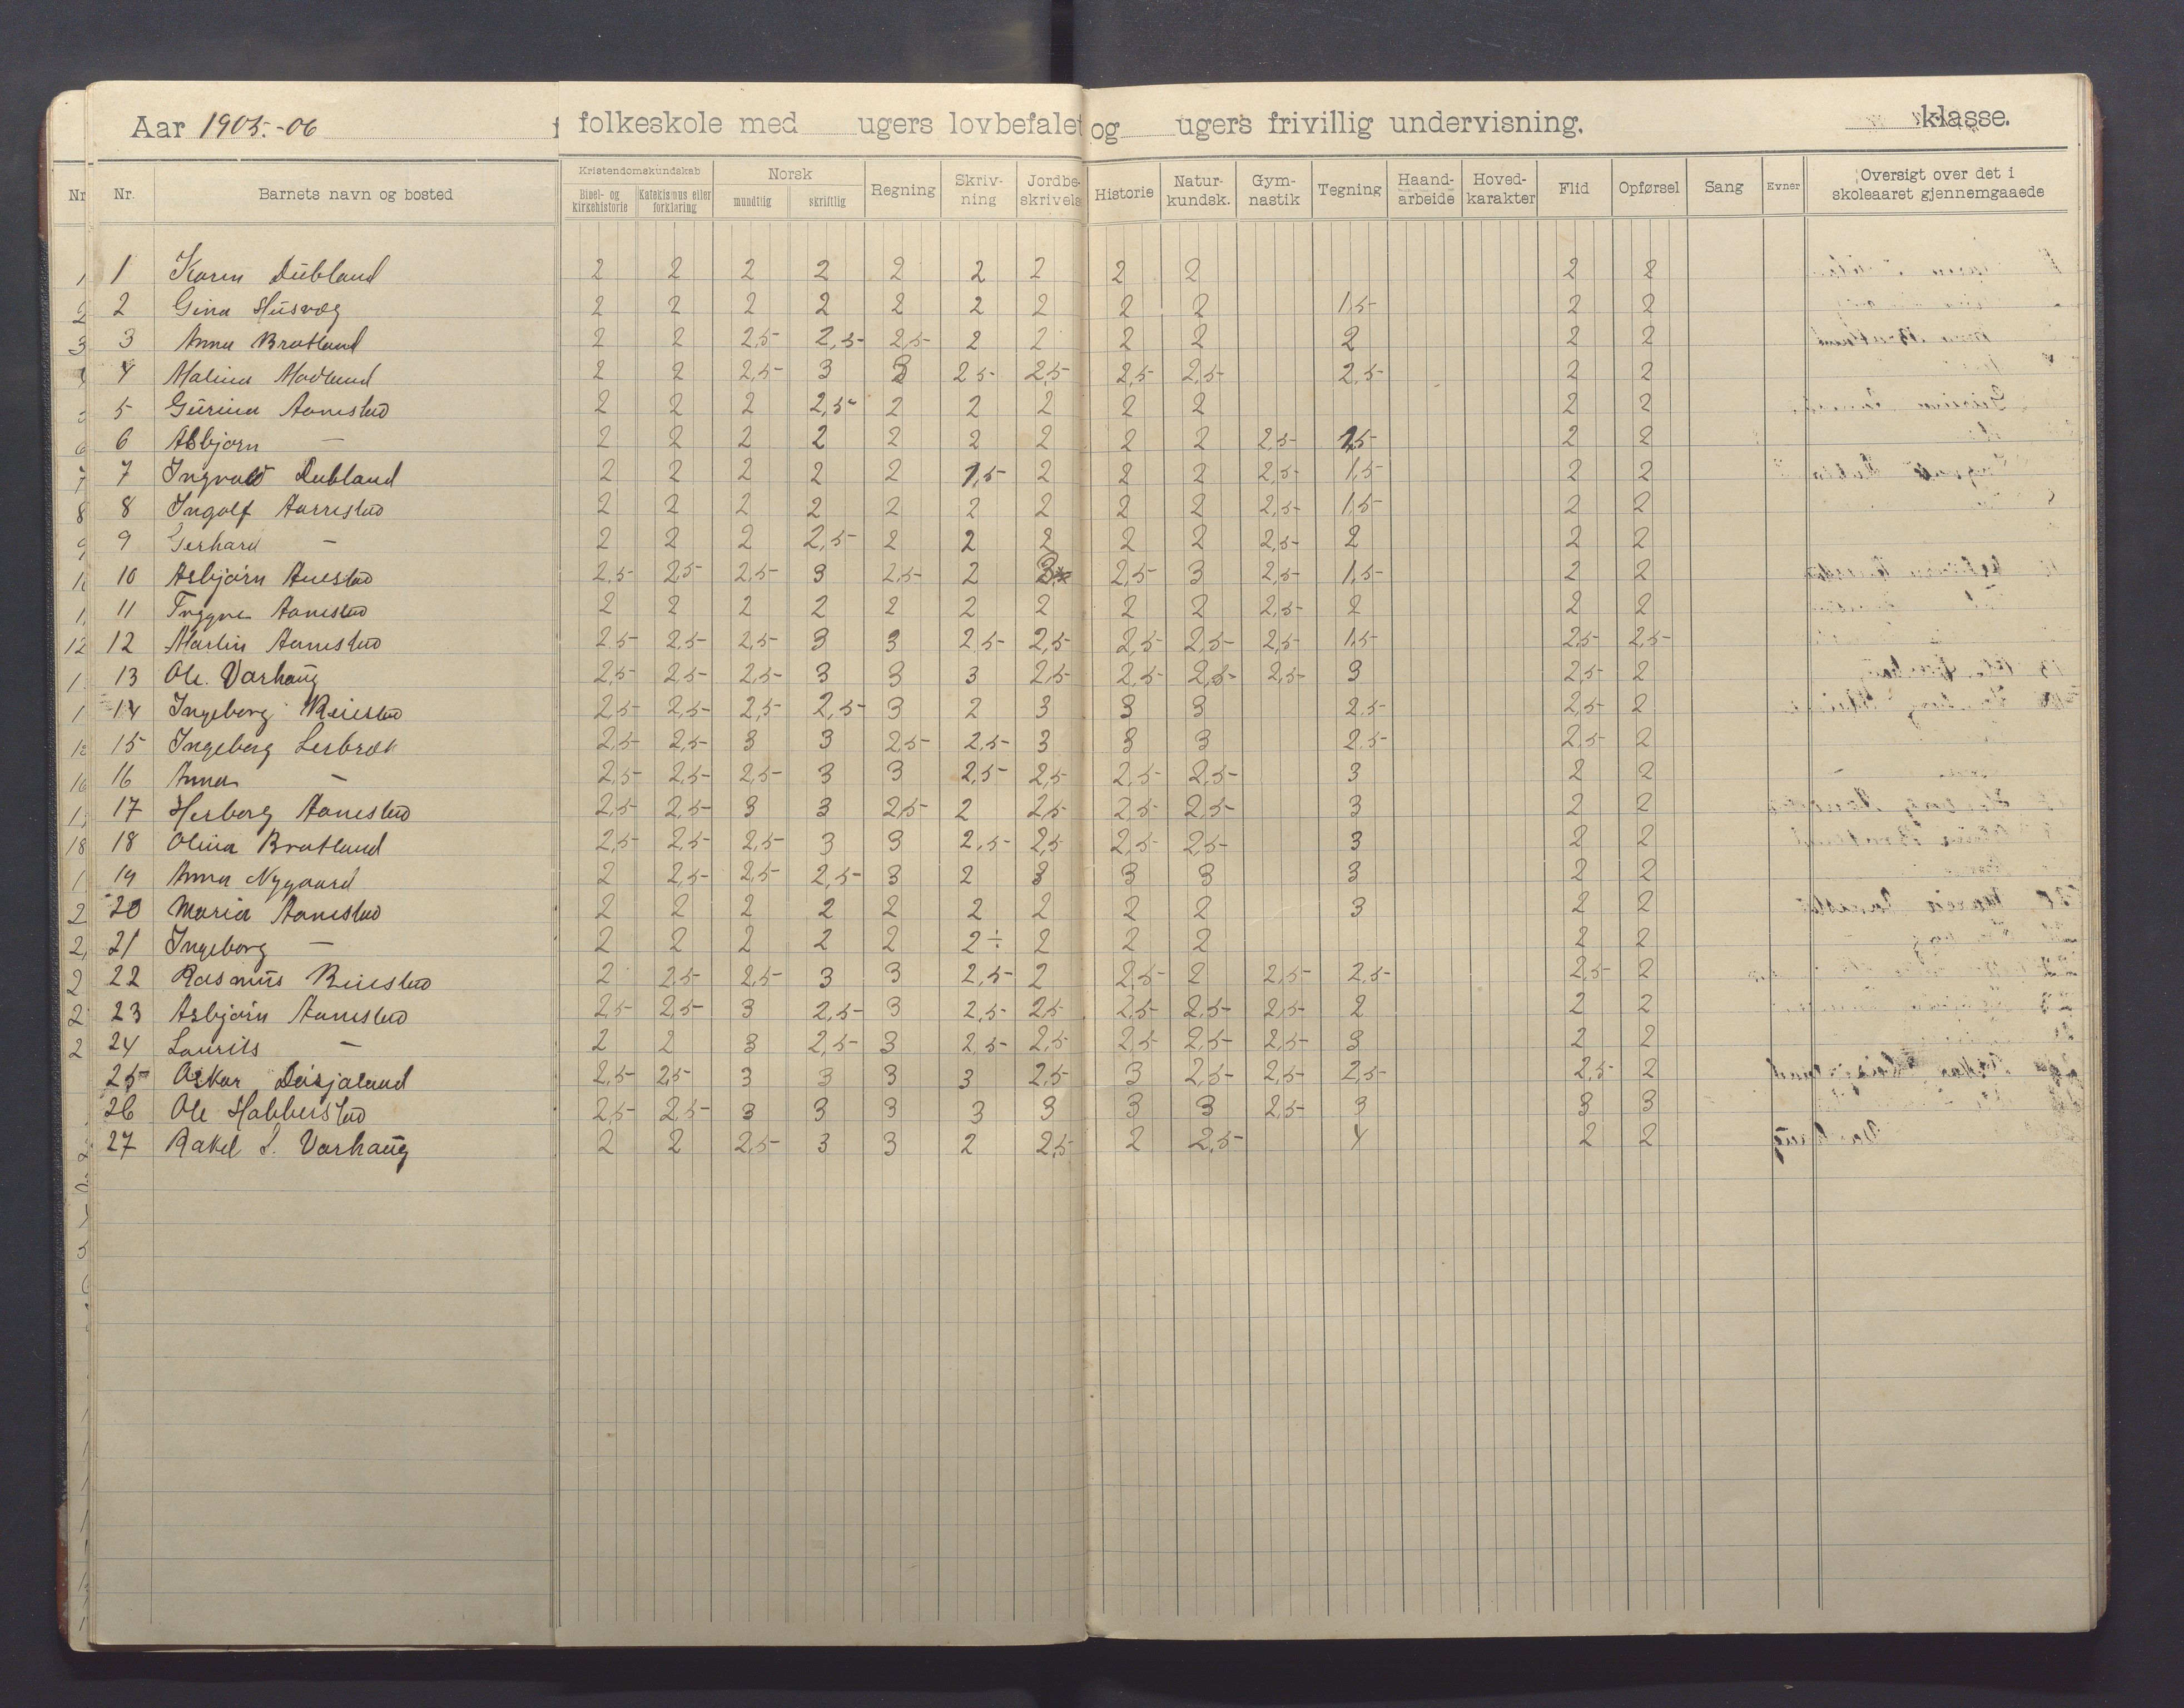 Aar 1905.-06 folkeskole med ugers lovbefalet og ugers frivillig undervisning. klasse.
Nr. Barnets navn og bosted Kristendomskundskab Bibel- og kirkehistorie Katekismus eller forklaring Norsk mundtlig skriftlig Regning Skriv-ning Jordbe-skrivels Historie Natur-kundsk. Gym-nastik Tegning Haand-arbeide Hoved-karakter Flid Opførsel Sang Evner Oversigt over det i skoleaaret gjennemgaaede
1 Karen Dubland 2 2 2 2 2 2 2 2 2 2 2
2 Gina Husvæg 2 2 2 2 2 2 2 2 2 1,5 2 2
3 Anna Bratland 2 2 2,5 2,5 2,5 2 2 2 2 2 2 2
4 Malina Madland 2 2 2,5 3 3 2,5 2,5 2,5 2,5 2,5 2 2
5 Gurina Aanestad 2 2 2 2,5 2 2 2 2 2 2 2
6 Asbjørn — 2 2 2 2 2 2 2 2 2 2,5 1,5 2 2
7 Ingvald Dubland 2 2 2 2 2 1,5 2 2 2 2,5 1,5 2 2
8 Ingolf Aanestad 2 2 2 2 2 2 2 2 2 2,5 1,5 2 2
9 Gerhard — 2 2 2 2,5 2 2 2 2 2 2,5 2 2 2
10 Asbjørn Auestad 2,5 2,5 2,5 3 2,5 2 3 2,5 3 2,5 1,5 2 2
11 Trygve Aanestad 2 2 2 2 2 2 2 2 2 2,5 2 2 2
12 Martin Aanestad 2,5 2,5 2,5 3 3 2,5 2,5 2,5 2,5 2,5 1,5 2,5 2,5
13 Ole Varhaug 2,5 2,5 2,5 3 3 3 2,5 2,5 2,5 2,5 3 2,5 2
14 Ingeborg Reiestad 2,5 2,5 2,5 2,5 3 2 3 3 3 2,5 2,5 2
15 Ingeborg Lerbræk 2,5 2,5 3 3 2,5 2,5 3 3 3 2,5 2,5 2
16 Anna — 2,5 2,5 2,5 3 3 2,5 2,5 2,5 2,5 3 2 2
17 Herborg Aanestad 2,5 2,5 3 3 2,5 2 2,5 2,5 2,5 3 2 2
18 Olina Bratland 2,5 2,5 2,5 3 3 2,5 2,5 2,5 2,5 3 2 2
19 Anna Nygaard 2 2,5 2,5 2,5 3 2 3 3 3 3 2 2
20 Maria Aanestad 2 2 2 2 2 2 2 2 2 3 2 2
21 Ingeborg — 2 2 2 2 2 2÷ 2 2 2 2 2
22 Rasmus Reiestad 2 2,5 2,5 3 3 2,5 2 2,5 2 2,5 2,5 2,5 2
23 Asbjørn Aanestad 2,5 2,5 3 2,5 3 2,5 2,5 2,5 2,5 2,5 2 2 2
24 Laurits — 2 2 3 2,5 3 2,5 2,5 2,5 2,5 2,5 3 2 2
25 Oskar Deisjaland 2,5 2,5 3 3 3 3 2,5 3 2,5 2,5 2,5 2,5 2
26 Ole Habberstad 2,5 2,5 3 3 3 3 3 3 3 2,5 3 3 3
27 Rakel S. Varhaug 2 2 2,5 3 3 2 2,5 2 2,5 4 2 2